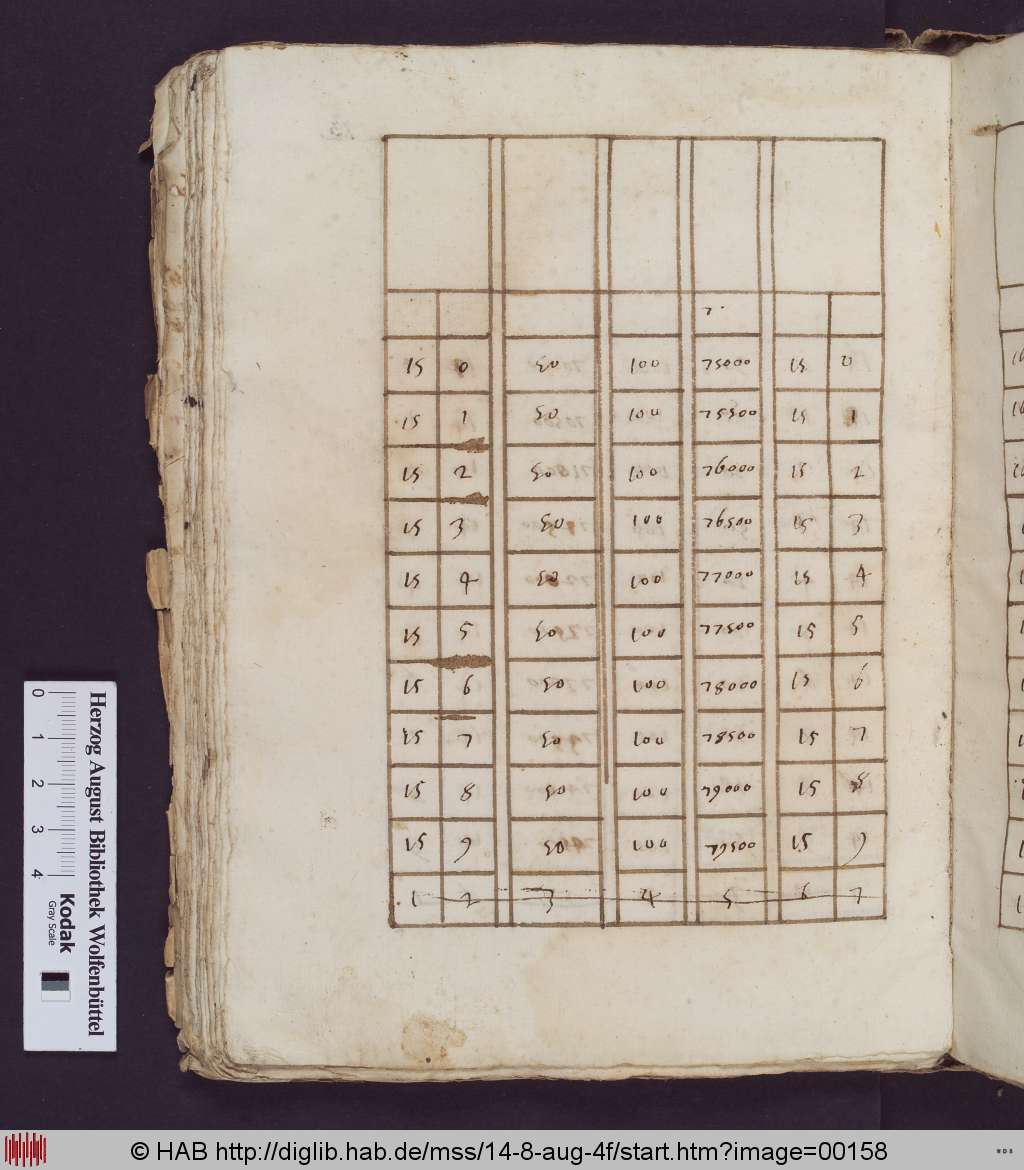 2.
15 0 50 100 75000 15 0
15 1 50 100 75500 15 1
15 2 50 100 76000 15 2
15 3 50 100 76500 15 3
15 4 50 100 77000 15 4
15 5 50 100 77500 15 5
15 6 50 100 78000 15 6
15 7 50 100 78500 15 7
15 8 50 100 79000 15 8
15 9 50 100 79500 15 9
1 2 3 4 5 6 7
Herzog August Bibliothek Wolfenbüttel
0 1 2 3 4
Kodak
Gray Scale
© HAB http://diglib.hab.de/mss/14-8-aug-4f/start.htm?image=00158